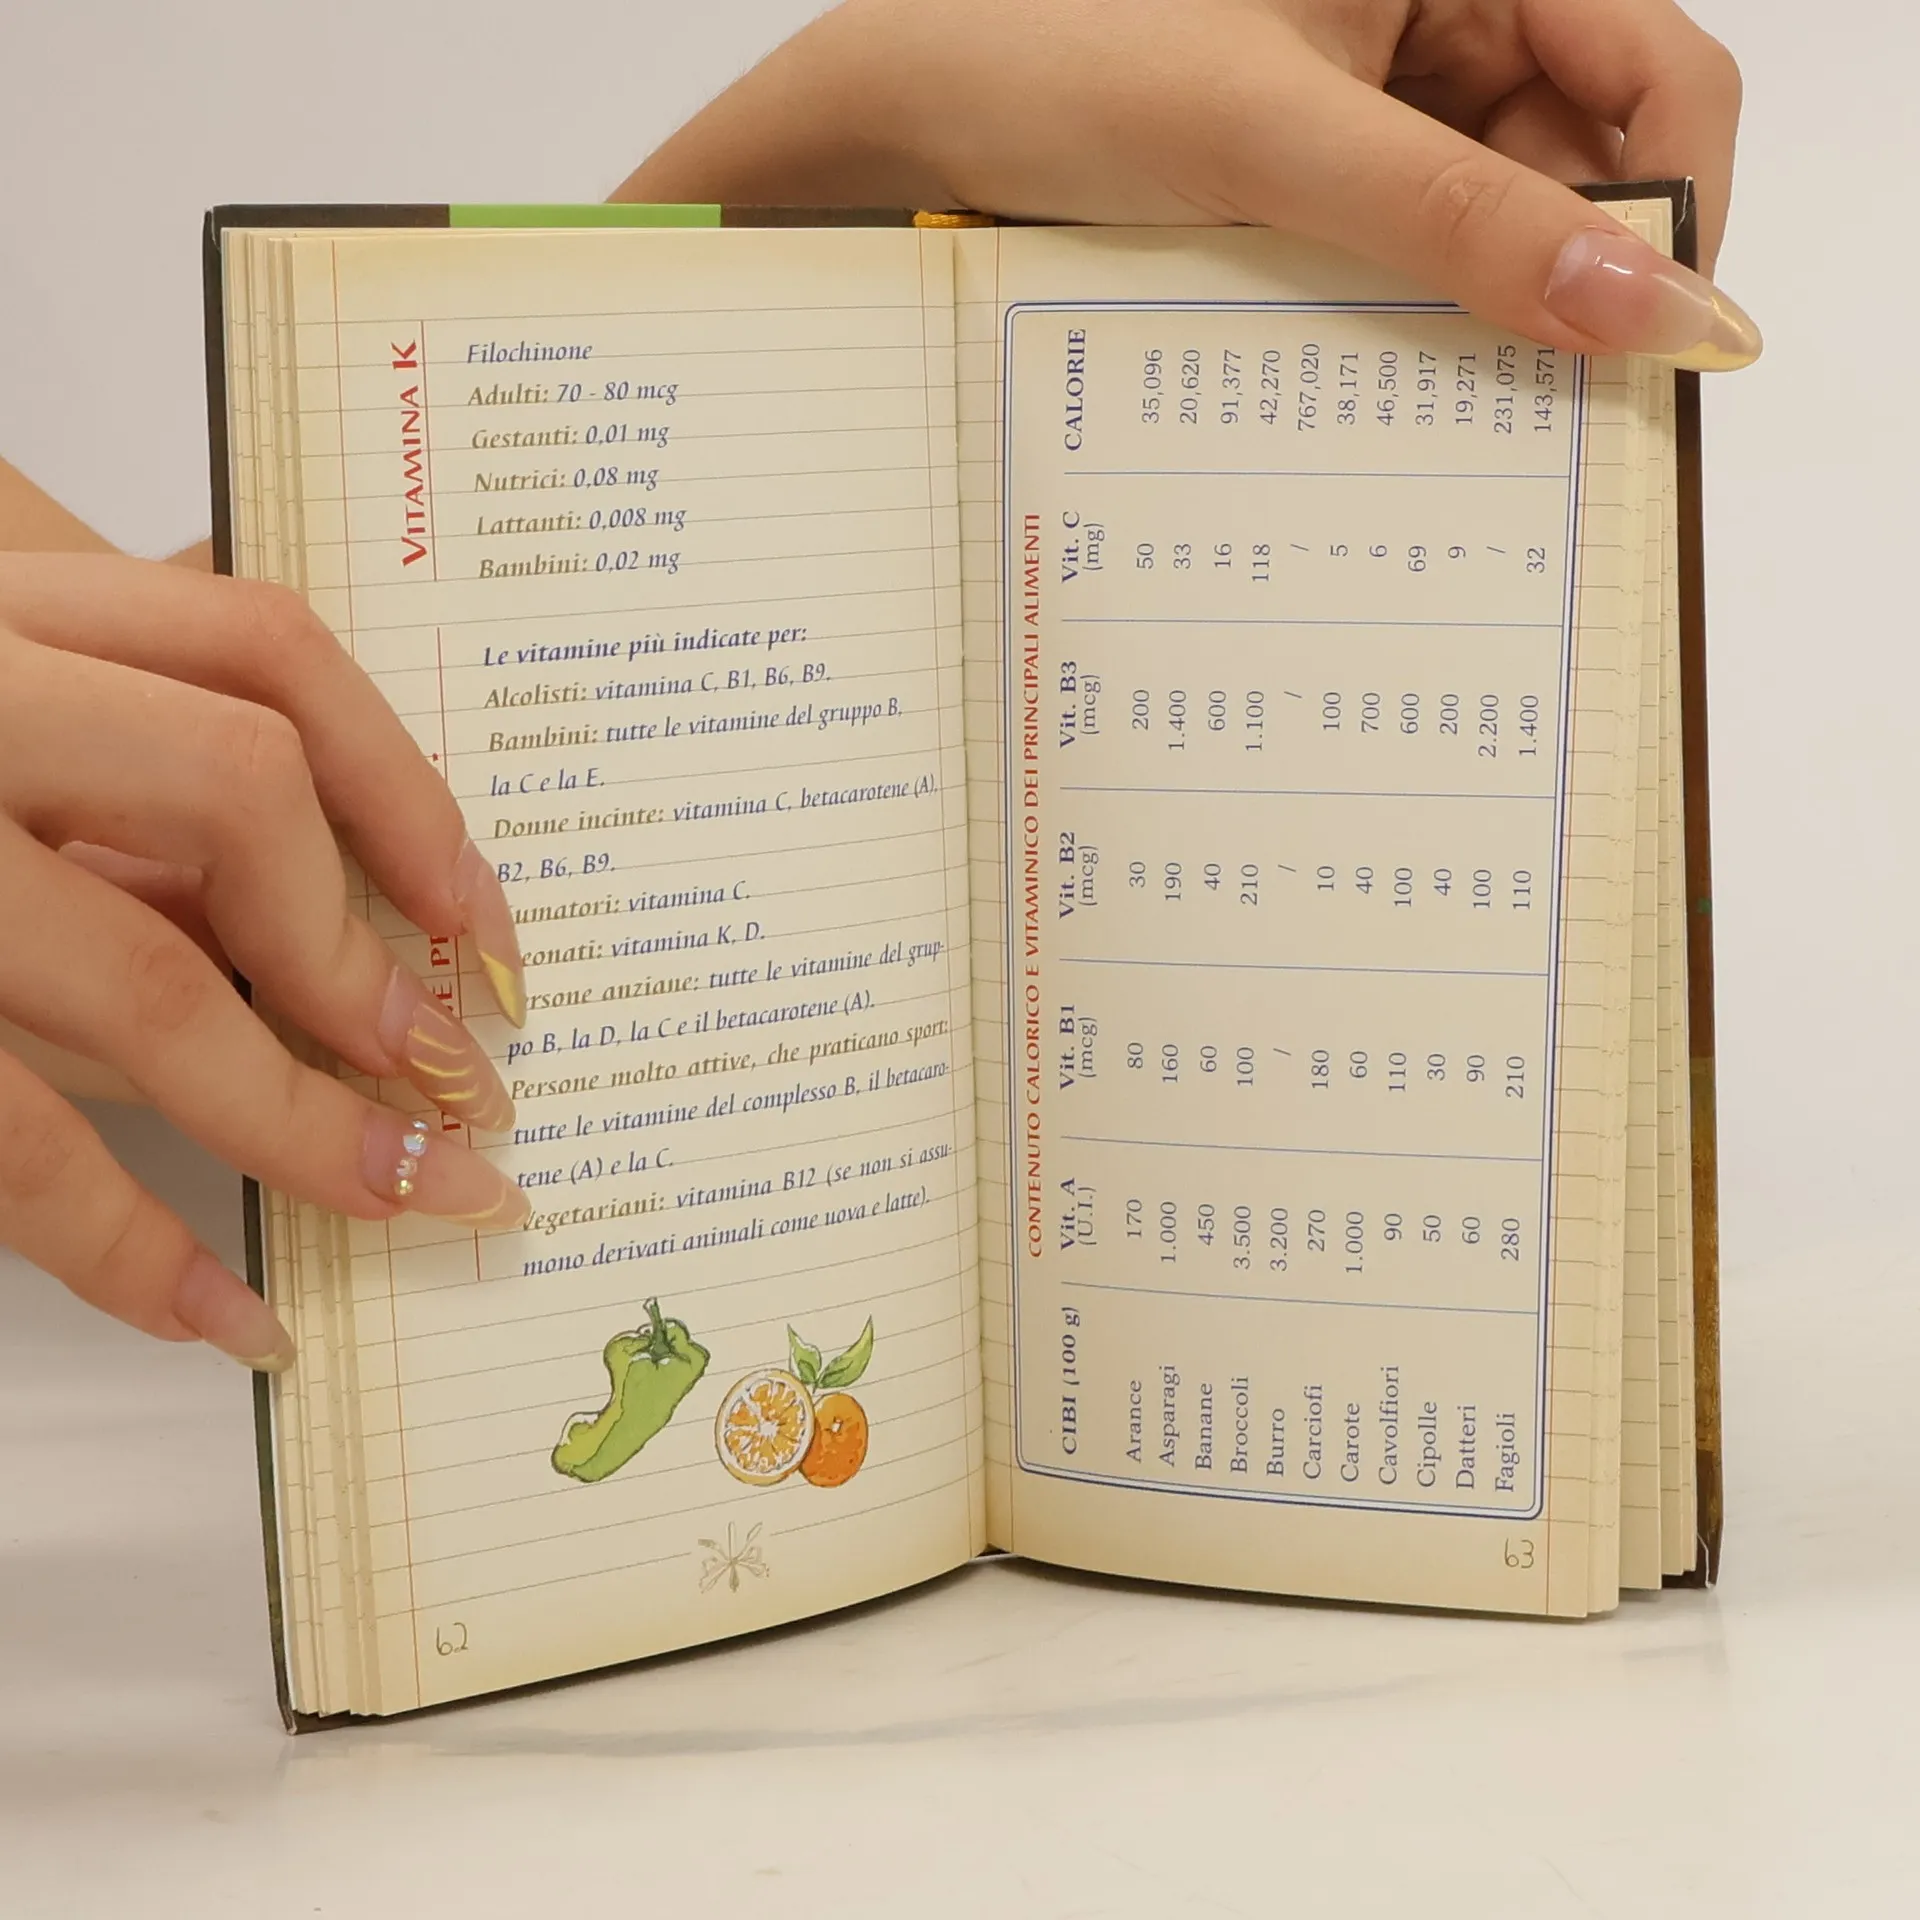 VITAMINA K
Filochinone
Adulti: 70 - 80 mcg
Gestanti: 0,01 mg
Nutrici: 0,08 mg
Lattanti: 0,008 mg
Bambini: 0,02 mg
Le vitamine più indicate per:
Alcolisti: vitamina C, B1, B6, B9.
Bambini: tutte le vitamine del gruppo B,
la C e la E.
Donne incinte: vitamina C, betacarotene (A),
B2, B6, B9.
umatori: vitamina C.
eonati: vitamina K, D.
rsone anziane: tutte le vitamine del grup-
po B, la D, la C e il betacarotene (A).
Persone molto attive, che praticano sport:
tutte le vitamine del complesso B, il betacaro-
tene (A) e la C.
Vegetariani: vitamina B12 (se non si assu-
mono derivati animali come uova e latte).
62
CONTENUTO CALORICO E VITAMINICO DEI PRINCIPALI ALIMENTI
CIBI (100 g) Vit. A (U.I.) Vit. B1 (mcg) Vit. B2 (mcg) Vit. B3 (mcg) Vit. C (mg) CALORIE
Arance 170 80 30 200 50 35,096
Asparagi 1.000 160 190 1.400 33 20,620
Banane 450 60 40 600 16 91,377
Broccoli 3.500 100 210 1.100 118 42,270
Burro 3.200 / / / / 767,020
Carciofi 270 180 10 100 5 38,171
Carote 1.000 60 40 700 6 46,500
Cavolfiori 90 110 100 600 69 31,917
Cipolle 50 30 40 200 9 19,271
Datteri 60 90 100 2.200 / 231,075
Fagioli 280 210 110 1.400 32 143,571
63